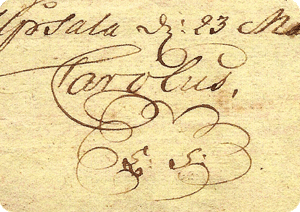 Upsala d: 23 Ma
Carolus.
L. S.